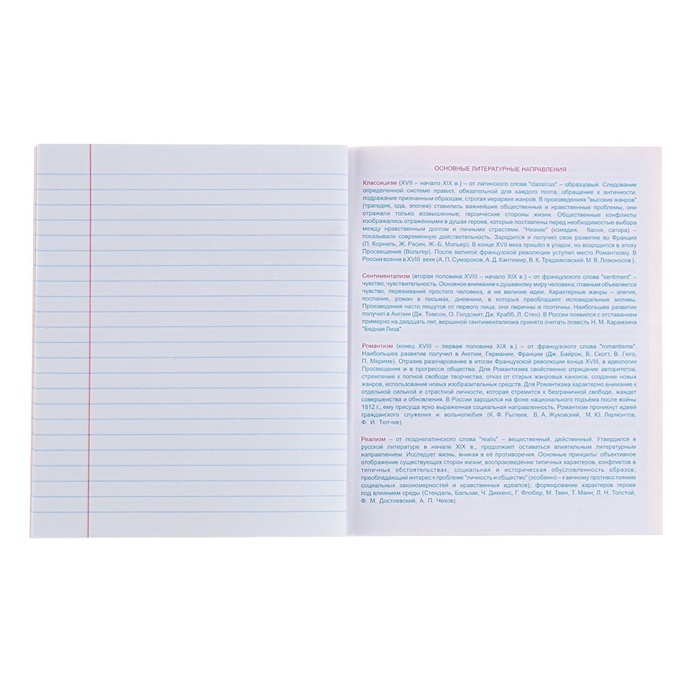 ОСНОВНЫЕ ЛИТЕРАТУРНЫЕ НАПРАВЛЕНИЯ
Классицизм (XVII – начало XIX в.) – от латинского слова "classicus" – образцовый. Следование
определенной системе правил, обязательной для каждого поэта, обращение к античности,
подражание признанным образцам, строгая иерархия жанров. В произведениях "высоких жанров"
(трагедия, ода, эпопея) ставились важнейшие общественные и нравственные проблемы, они
отражали только возвышенные, героические стороны жизни. Общественные конфликты
изображались отражёнными в душах героев, которые поставлены перед необходимостью выбора
между нравственным долгом и личными страстями. "Низкие" (комедия, басня, сатира) –
показывали современную действительность. Зародился и получил свое развитие во Франции
(П. Корнель, Ж. Расин, Ж.-Б. Мольер). В конце XVII века пришёл в упадок, но возродился в эпоху
Просвещения (Вольтер). После великой французской революции уступил место Романтизму. В
России возник в XVIII веке (А. П. Сумароков, А. Д. Кантемир, В. К. Тредиаковский, М. В. Ломоносов.).
Сентиментализм (вторая половина XVIII – начало XIX в.) – от французского слова "sentiment" –
чувство, чувствительность. Основное внимание к душевному миру человека; главным объявляется
чувство, переживания простого человека, а не великие идеи. Характерные жанры – элегия,
послание, роман в письмах, дневники, в которых преобладают исповедальные мотивы.
Произведения часто пишутся от первого лица, они лиричны и поэтичны. Наибольшее развитие
получил в Англии (Дж. Томсон, О. Голдсмит, Дж. Крабб, Л. Стен). В России появился с отставанием
примерно на двадцать лет, вершиной сентиментализма принято считать повесть Н. М. Карамзина
"Бедная Лиза".
Романтизм (конец XVIII – первая половина XIX в.) – от французского слова "romantisme".
Наибольшее развитие получил в Англии, Германии, Франции (Дж. Байрон, В. Скотт, В. Гюго,
П. Мериме). Отразив разочарование в итогах Французской революции конца XVIII, в идеологии
Просвещения и в прогрессе общества. Для Романтизма свойственно отрицание авторитетов,
стремление к полной свободе творчества, отказ от старых жанровых канонов, создание новых
жанров, использование новых изобразительных средств. Для Романтизма характерно внимание к
отдельной сильной и страстной личности, которая стремится к безграничной свободе, жаждет
совершенства и обновления. В России зародился на фоне национального подъёма после войны
1812 г., ему присуща ярко выраженная социальная направленность. Романтизм проникнут идеей
гражданского служения и вольнолюбия (К. Ф. Рылеев, В. А. Жуковский, М. Ю. Лермонтов,
Ф. И. Тютчев).
Реализм – от позднелатинского слова "realis" – вещественный, действенный. Утвердился в
русской литературе в начале XIX в., продолжает оставаться влиятельным литературным
направлением. Исследует жизнь, вникая в её противоречия. Основные принципы: объективное
отображение существующих сторон жизни; воспроизведение типичных характеров, конфликтов в
типичных обстоятельствах; социальная и историческая обусловленность образов,
преобладающий интерес к проблеме "личность и общество" (особенно – к вечному противостоянию
социальных закономерностей и нравственных идеалов); формирование характеров героев
под влиянием среды (Стендаль, Бальзак, Ч. Диккенс, Г. Флобер, М. Твен, Т. Манн, Л. Н. Толстой,
Ф. М. Достоевский, А. П. Чехов).